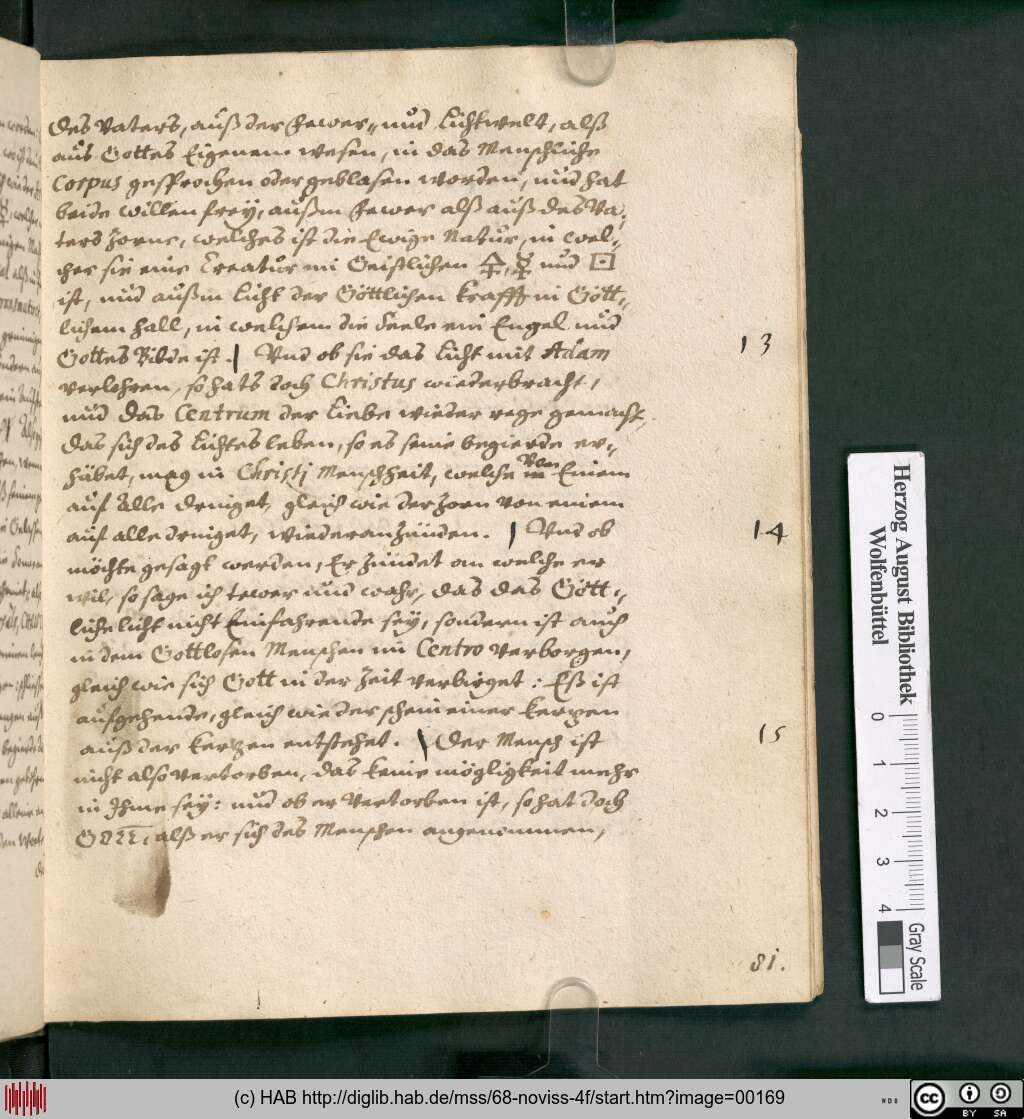 des Vaters, auß der Fewer- und Lichtwelt, alß
aus Gottes Eigenem wesen, in das Menschliche
Corpus gesprochen oder geblasen worden, und hat
beide willen frey, außm Fewer alß auß des Va-
ters Zorne, welches ist die Ewige Natur, in wel-
cher sie eine Creatur im Geistlichen 🜍, ☿ und
ist, und außm Licht der Göttlichen Krafft in Gött-
lichem hall, in welchem die Seele ein Engel und
Gottes Bilde ist. | Und ob sie das Licht mit Adam 13
verlohren, so hats doch Christus wiederbracht,
und das Centrum der Liebe wieder rege gemacht,
das sich des Lichtes leben, so es seine begierde er-
häbet, mag in Christi Menschheit, welche von Einem
auf Alle dringet, gleich wie der Zorn von einem
auf alle dringet, wieder anzünden. | Und ob 14
möchte gesagt werden, Er zündet an welche er
wil, so sage ich tewer und wahr, das das Gött-
liche licht nicht Einfahrende sey, sondern ist auch
in dem Gottlosen Menschen im Centro verborgen,
gleich wie sich Gott in der Zeit verbirget: Eß ist
aufgehende, gleich wie der schein einer kertzen
auß der kertzen entstehet. | Der Mensch ist 15
nicht also vertorben, das keine mögligkeit mehr
in Ihme sey: und ob er vertorben ist, so hat doch
GOTT, alß er sich des Menschen angenommen,
81.
Herzog August Bibliothek
Wolfenbüttel
0 1 2 3 4
Gray Scale
(c) HAB http://diglib.hab.de/mss/68-noviss-4f/start.htm?image=00169
cc BY SA